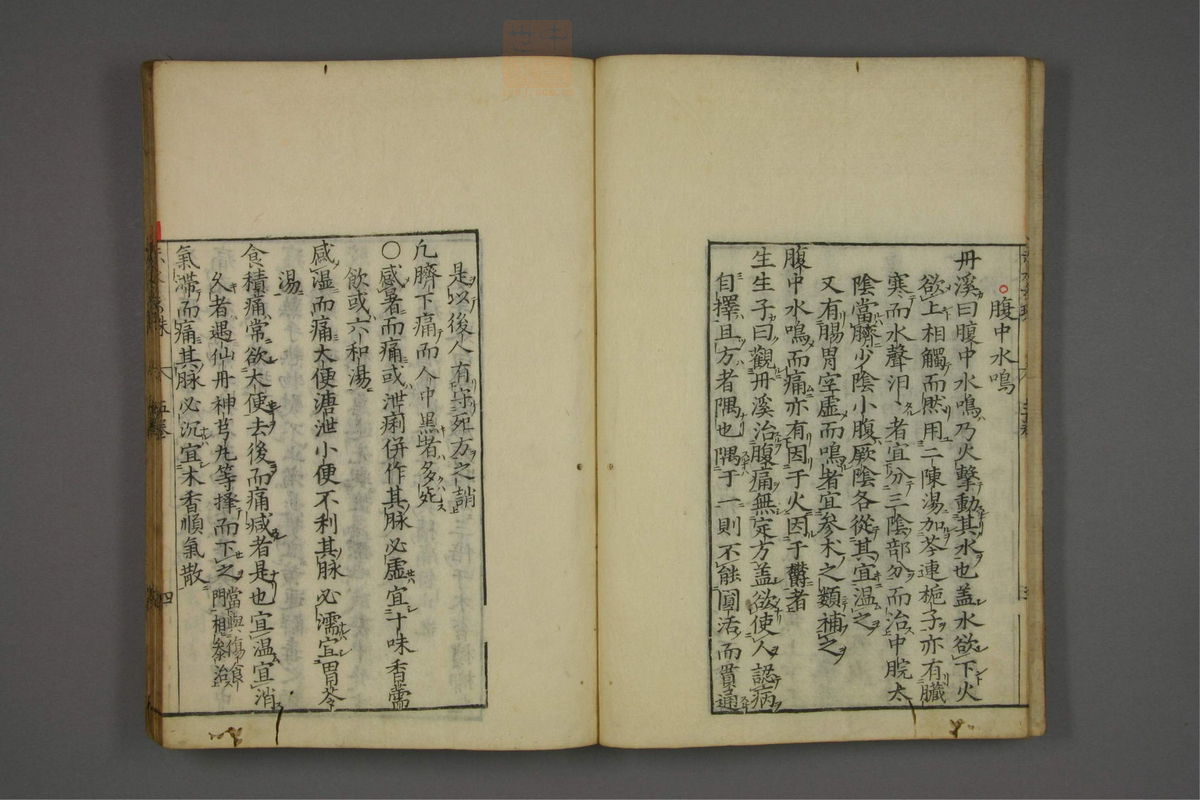 腹中水鳴
丹溪曰腹中水鳴乃火擊動其水也盖水欲下火
欲上相觸而然用二陳湯加芩連栀子亦有臟
寒而水聲汨〻者宜分三陰部分而治中脘太
陰當臍少陰小腹厥陰各從其宜温之
又有腸胃空虚而鳴者宜参术之類補之
腹中水鳴而痛亦有因于火因于欝者
生生子曰觀丹溪治腹痛無定方盖欲使人認病
自擇且方者隅也隅于一則不能圓活而貫通
是以後人有守死方之誚
凢臍下痛而人中黒者多死
〇感暑而痛或泄痢併作其脉必虚宜十味香薷
飲或六和湯
感湿而痛大便溏泄小便不利其脉必濡宜胃苓
湯
食積痛常欲大便去後而痛減者是也宜温宜消
久者遇仙丹神芎丸等擇而下之當與傷食門相参治
氣滞而痛其脉必沉宜木香順氣散
五卷
四